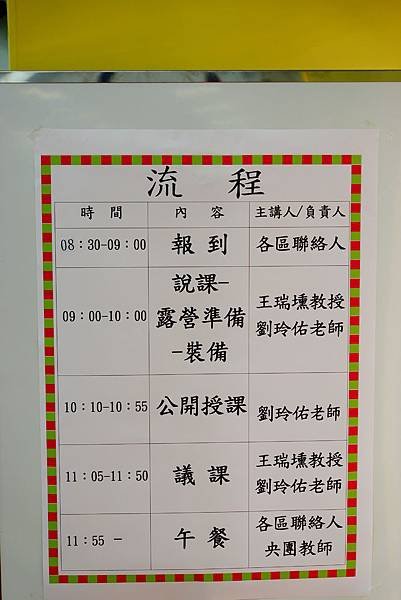 流 程
時 間 內 容 主講人/負責人
08：30-09：00 報 到 各區聯絡人
09：00-10：00
說課-
露營準備
-裝備
王瑞壎教授
劉玲佑老師
10：10-10：55 公開授課 劉玲佑老師
11：05-11：50 議 課
王瑞壎教授
劉玲佑老師
11：55 - 午 餐
各區聯絡人
央團教師